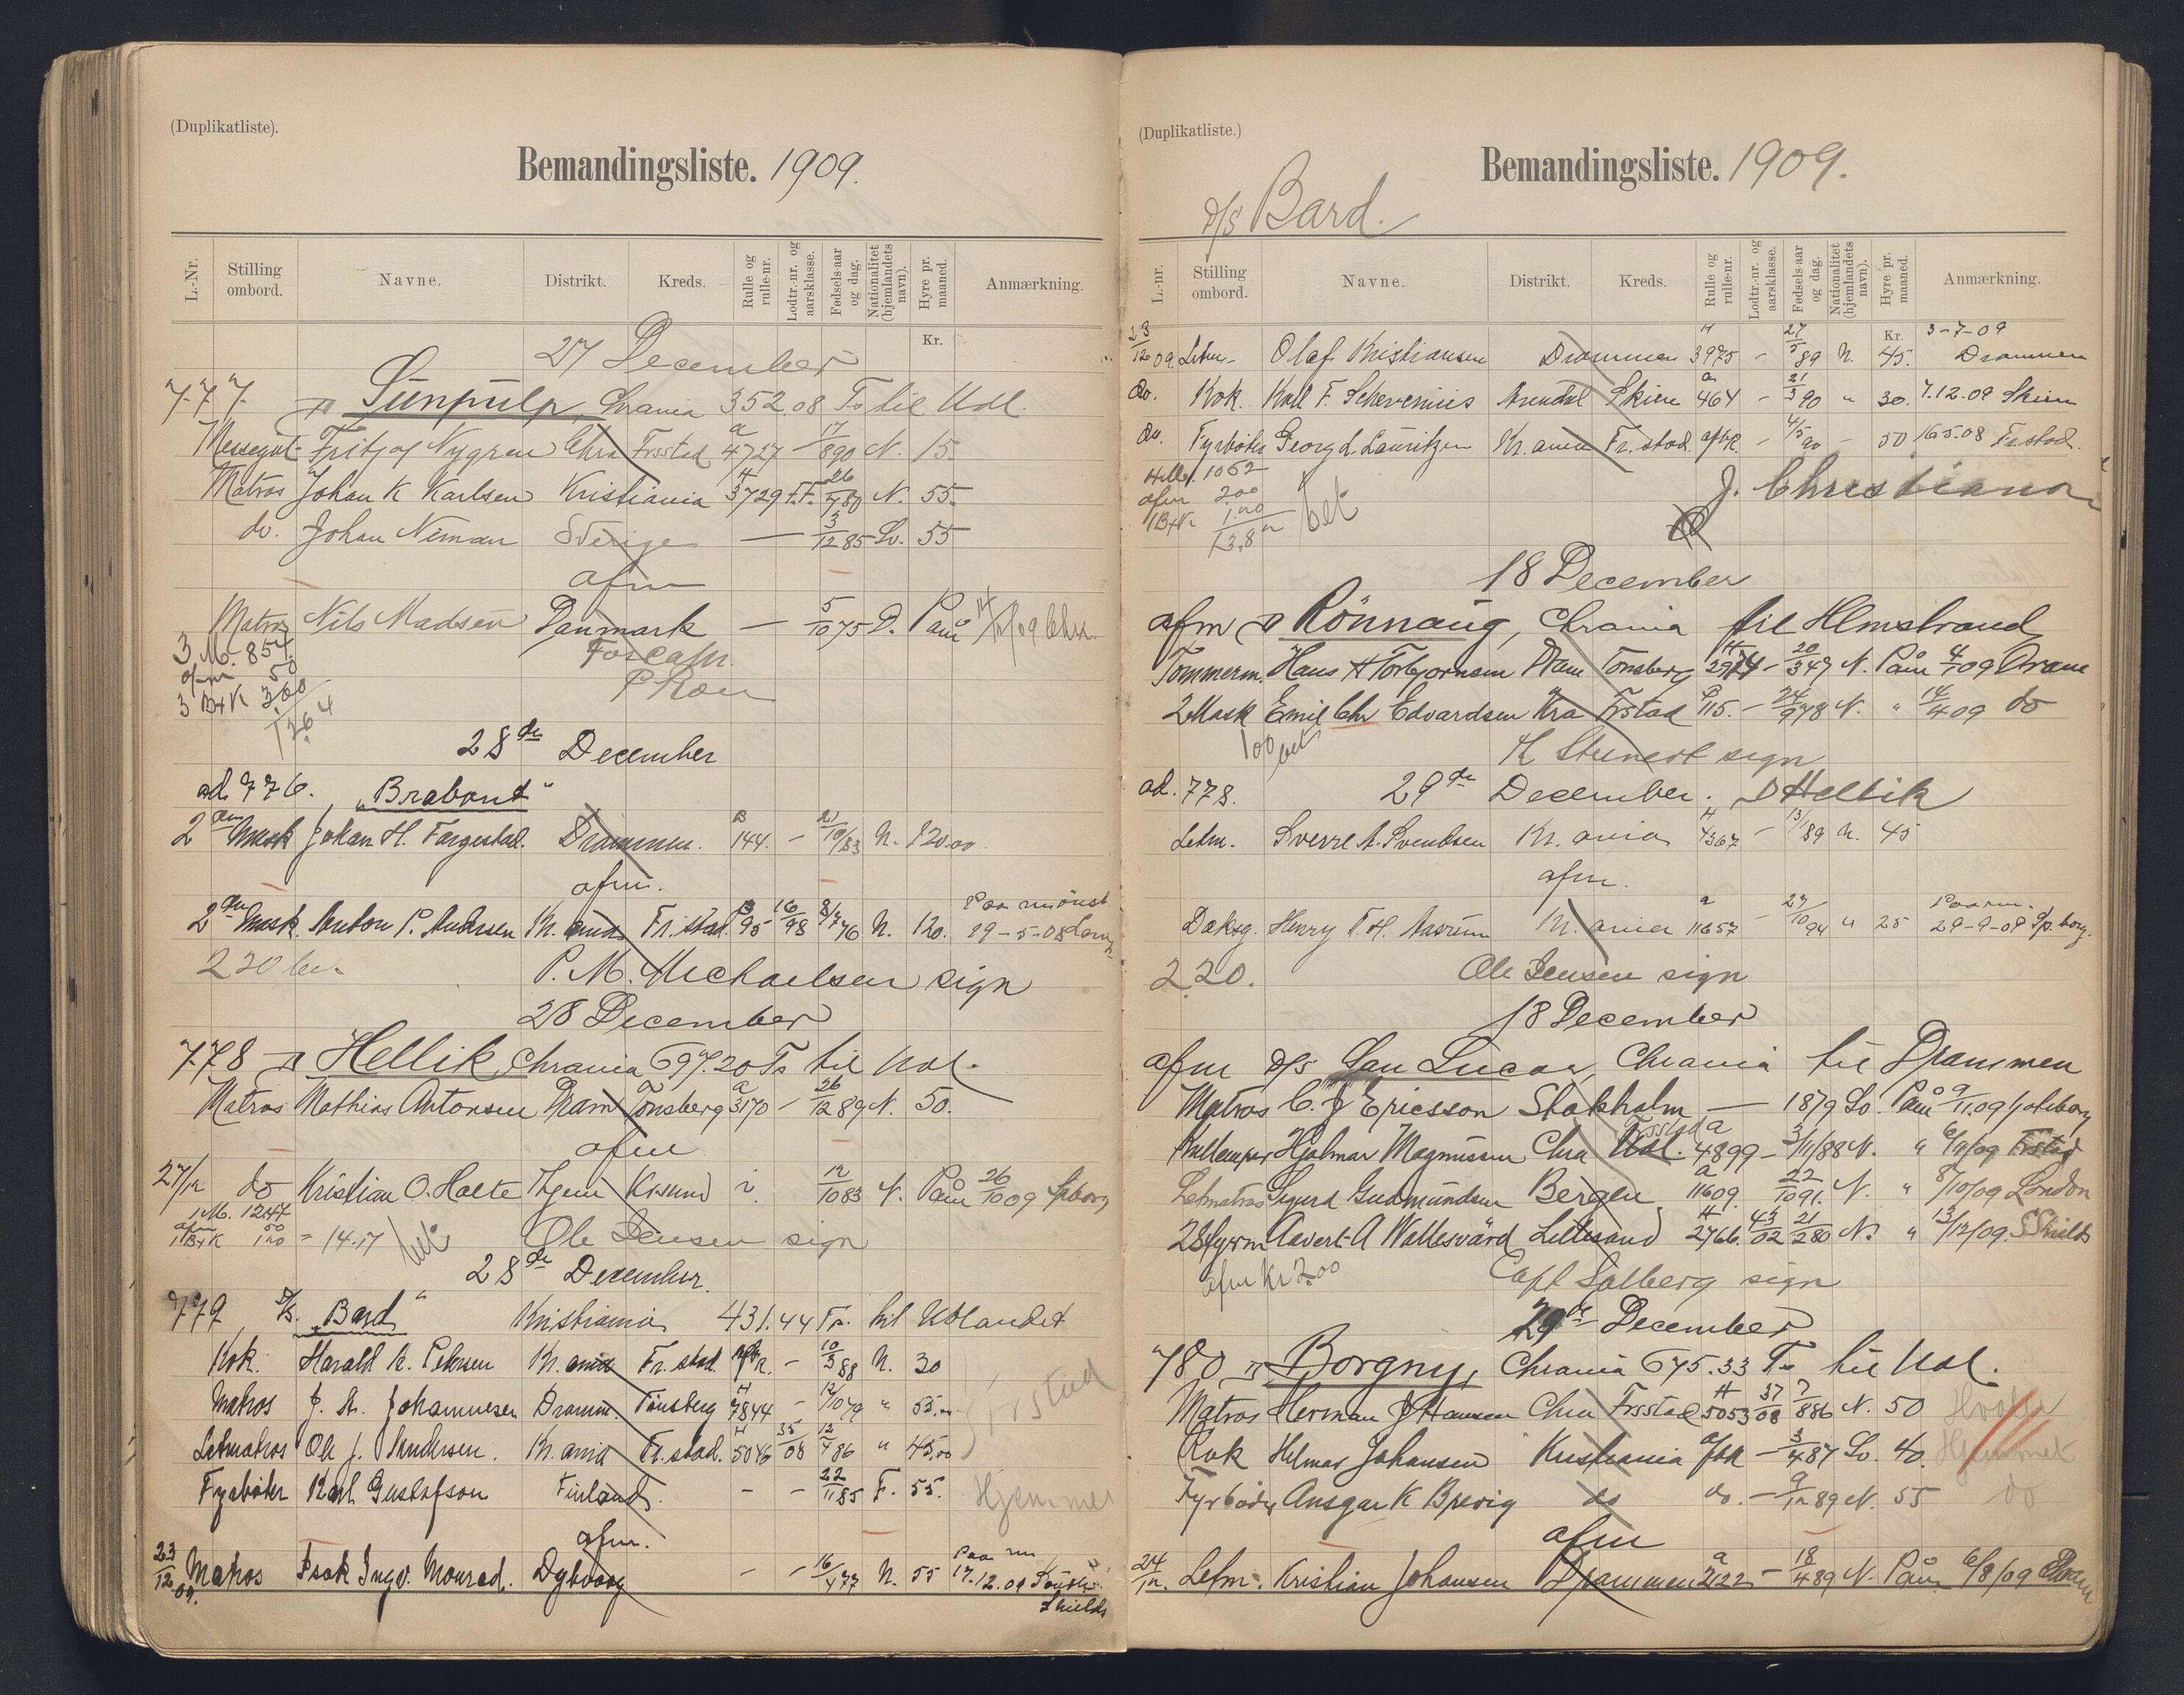 (Duplikatliste).
Bemandingsliste. 1909.
L.-Nr. Stilling ombord. Navne. Distrikt. Kreds. Rulle og rulle-nr. Lodtr.-nr. og aarsklasse. Fødsels-aar og dag. Nationalitet (hjemlandets navn). Hyre pr. maaned. Anmærkning.
Kr.
27 December
777. Sunpulp, Chrania 352.08 Ts til Udl.
Messegut Fritjof Nygren Chra Frsstad a 4727 – 17/8 90 N. 15.
Matros Johan K Karlsen Kristiania H 3729 F.F. 26/7 80 N. 55.
do. Johan Niman Sverige — 3/12 85 Sv. 55
afm
Matros Nils Madsen Danmark — 5/10 75 D. Paam 09 Chra.
3 M. 854.
afm 50
3 B+K 3.00
1264
28de December
ad 776. "Brabant"
2den Mask Johan H. Fargestad. Drammen. B 144. – 21/10/83 N. 120.00.
afm.
2den Mask. Anton P. Andersen Kr. ania Fr.stad. B 95 – 16/98 8/7 76 N. 120. Paa mönst 29-5-08
220
P. M. Michaelsen sign
28 December
778 Hellik, Chrania 697.20 Ts til Udl.
Matros Mathias Antonsen Dram Tönsberg a 3170 – 26/12 89 N. 50.
afm
27/12 do Kristian O. Holte Thjem Krsund i. 12/10 83 N. Paam 26/10 09 Spborg
1 M. 12.47
afm 50
1 B+K 1.20 = 14.17
bet.
Ole Jensen sign
28de December.
779 D/S. "Bard" Kristiania 431.44 Ts. til Udlandet
Kok. Harald A. Petersen Kr. ania Fr. stad. afbR. – 10/3 88 N. 30
Matros J. A. Johannesen Dramm. Tönsberg H 7844 – 12/10 79 " 55.00
Letmatros Ole J. Andersen. Kr. ania Fr. stad. H 5046 35/08 12/4 86 " 45,00
Frstad
Fyrböter Karl Gustafson Finland. – – 22/11 85 F. 55.
Hjemmet
afm.
23/12 09. Matros Isak Ingv. Monrad. Dybvaag – – 16/4 77 N. 55 Paa m 17.12.09 South Shields
(Duplikatliste.)
Bemandingsliste. 1909.
D/S Bard.
L.-nr. Stilling ombord. Navne. Distrikt. Kreds. Rulle og rulle-nr. Lodtr.-nr. og aarsklasse. Fødsels-aar og dag. Nationalitet (hjemlandets navn). Hyre pr. maaned. Anmærkning.
Kr.
23/12 09. Letm. Olaf Kristiansen Drammen H 3975 – 27/5 89 N. 45. 3-7-09 Drammen
do. Kok. Karl F. Schervenius Arendal Skien a 464 – 21/3 90 " 30. 7.12.09 Skien
do. Fyrböter Georg L. Lauritzen Kr. ania Fr. stad. afbR. – 4/5 90 – 50 16.5.08 Fr.stad.
1062
afm 2.00
1 B+K 1.20
13,82
bet.
J. Christians
18 December
afm Rönnaug, Chrania til Hlmstrand
Tömmerm. Hans H Torbjornsen Dram Tönsberg H 2974 – 20/3 47 N. Paam 4/1 09 Dram
2 Mask Emil Chr Edvardsen Kra Frstad P 115. – 24/9 78 N. " 14/4 09 do
100 bet
H Steinert sign
ad. 778. 29de December. Hellik
Letm. Sverre A. Svendsen Kr. ania H 4367 – 13/ 89 N. 45
afm.
Daksg. Henry T. H. Amrum Kr. ania a 11657 – 29/10 94 " 25 Paa m. 29-9-09 Sp.borg.
2.20.
Ole Jensen sign
18 December
afm D/S San Lucas, Chrania til Drammen
Matros C. J Ericsson Stokholm — 1879 Sv. Paam 9/11.09 Goteborg
Kullemper Hjalmar Magnussen Chra Frsstad a 4899 – 3/11/88 N. " 6/ 09 Frstad
Letmatros Sigurd Gudmundsen Bergen a 11609. 22/10 91. N. " 8/10/09 London
2 Styrm Aavert A Wallesvärd Lillesand H 2766. 43/02 21/2 80 N. " 13/12/09. S Shields
afm Kr 2.00
Capt Solberg sign
29de December
780 Borgny, Chrania 675.33 Ts til Udl.
Matros Herman J Hansen Chra Frsstad H 5053 37/08 7/8 86 N. 50
Kok Helmar Johansen Kristiania afbR – 3/4 87 Sv. 40. Hjemmet
Fyrböder Ansgar K Brevig do do. – 9/12 89 N. 55 do
afm
24/12. Letm. Kristian Johansen Drammen a 2122 – 18/4 89 N. Paam. 6/8/09 Dram